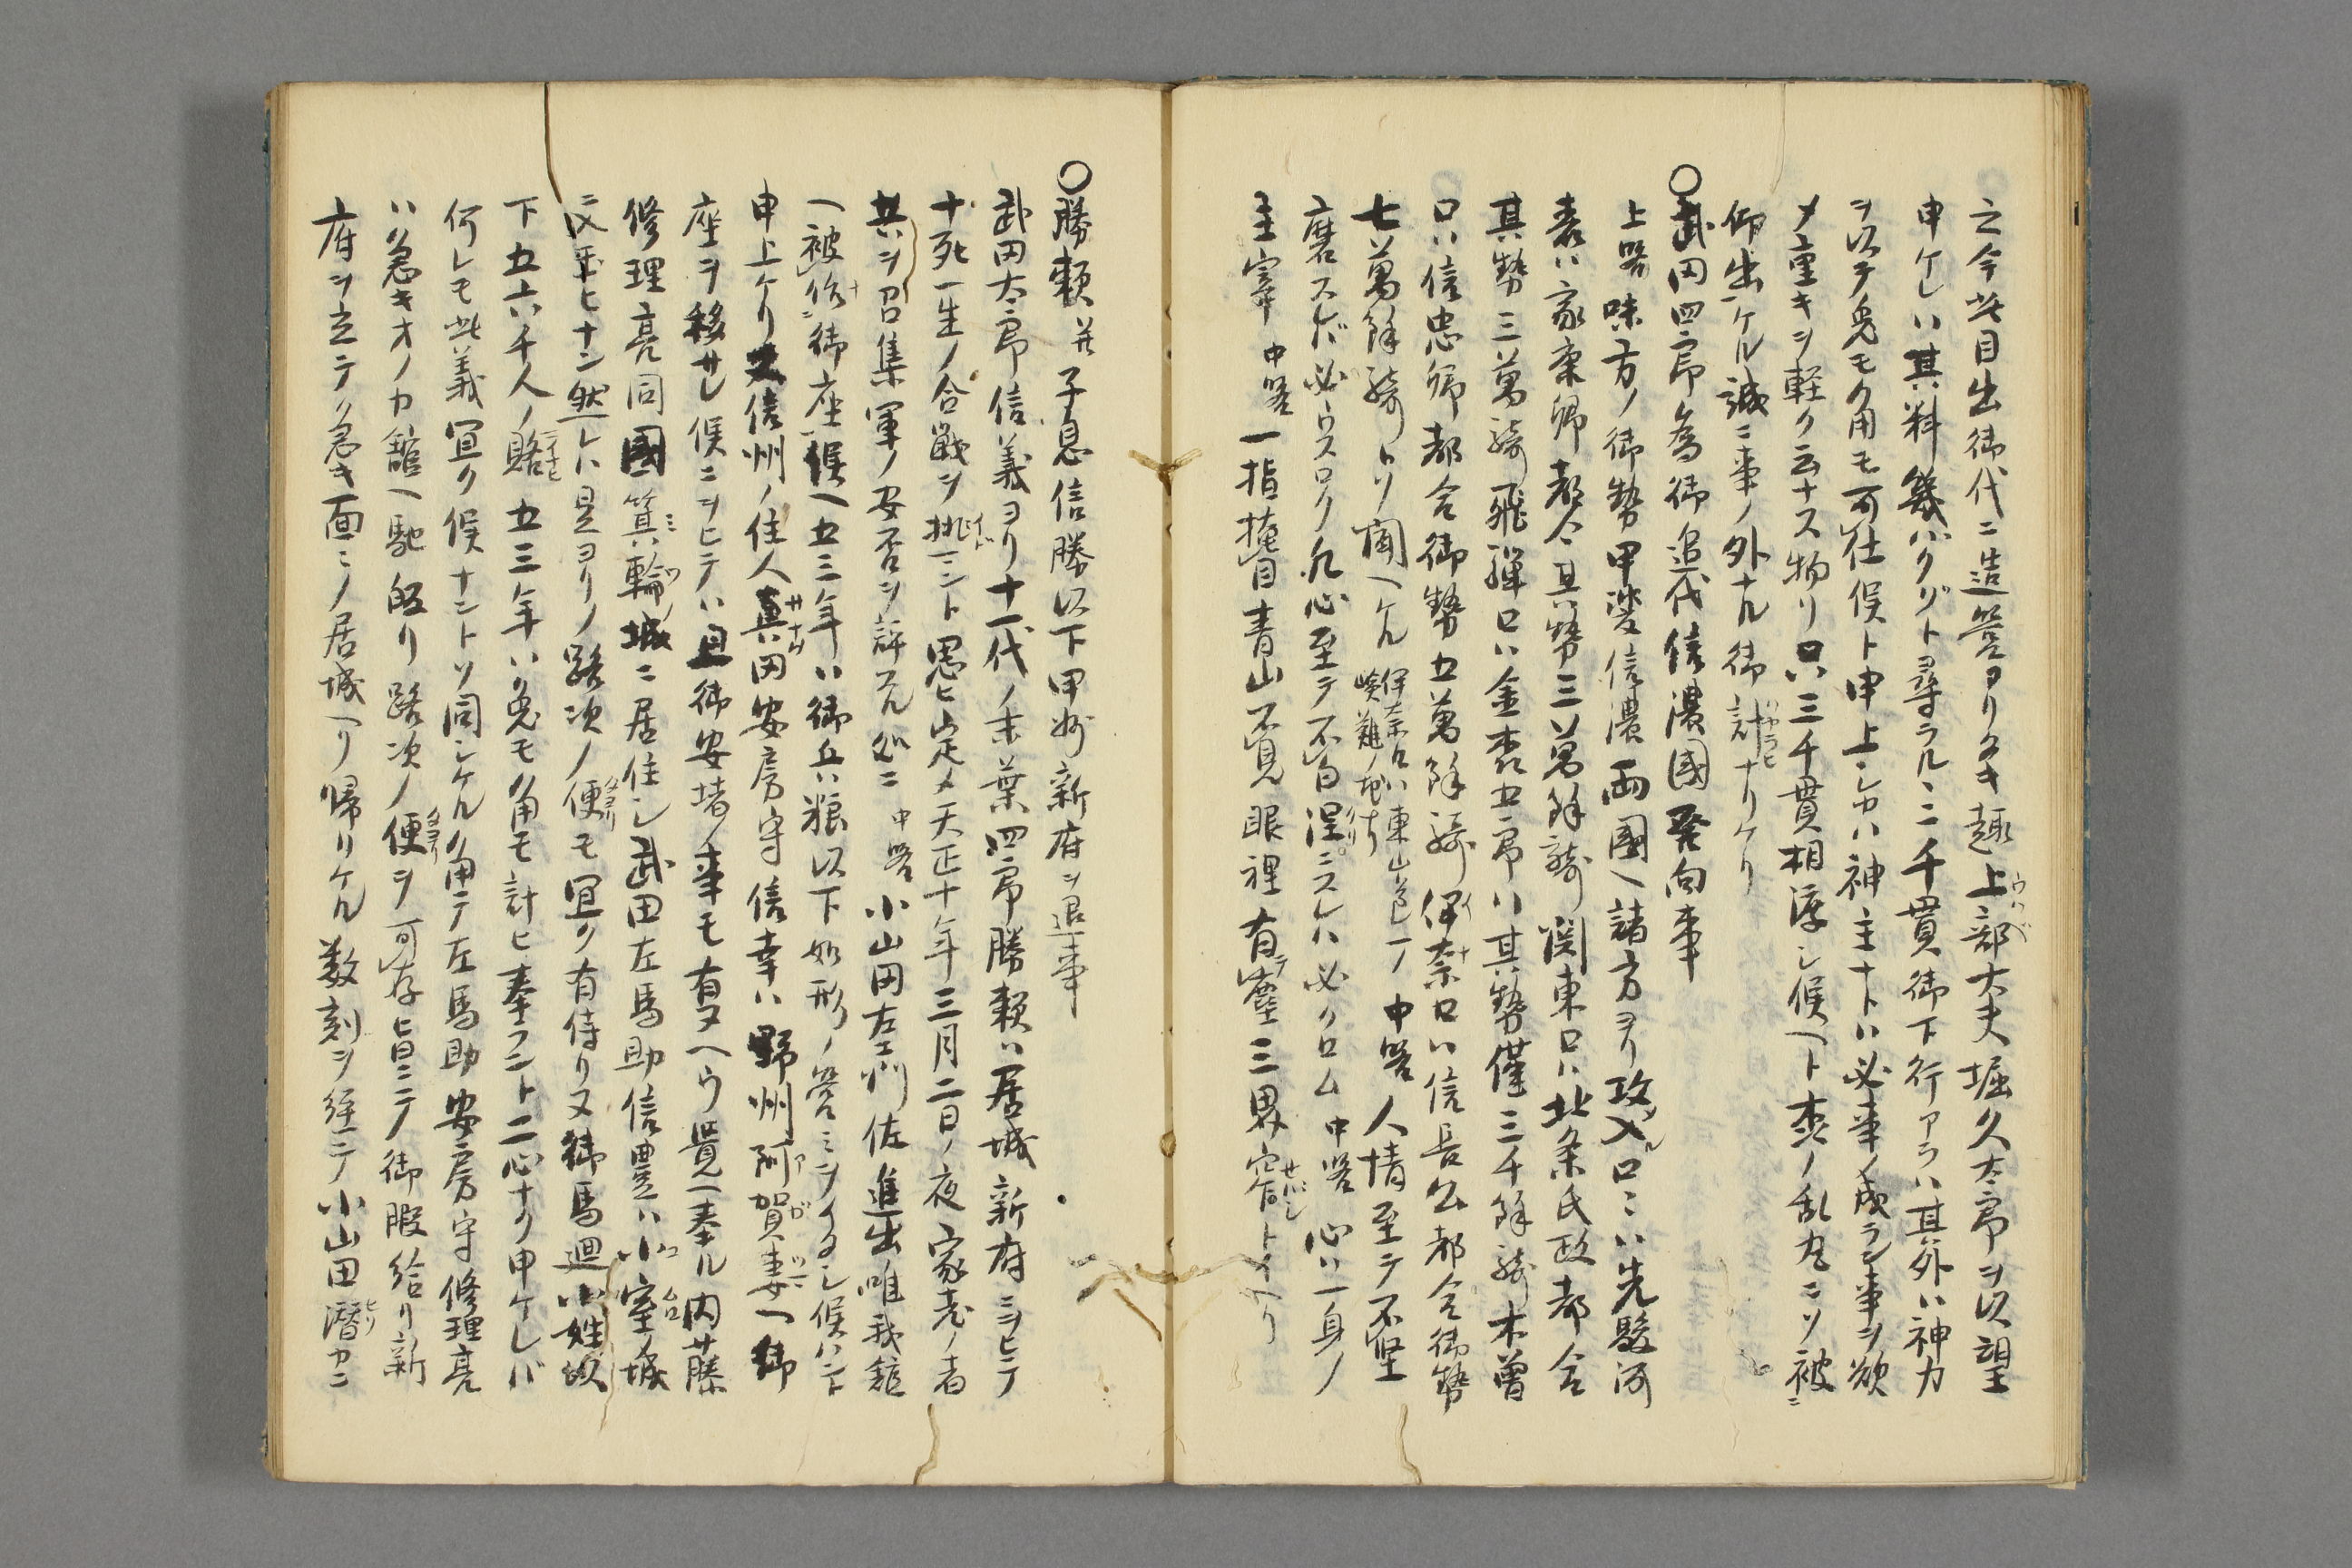 立今此目出御代ニ造営ヨリタキ趣上部大夫堀久太郎ヲ以望
申ケレハ其料幾バクゾト尋ラルヽニ千貫御下行アラハ其外ハ神力
ヲ以テ兎モ角モ可仕候ト申上シカハ神主ナトハ必事ノ成ラン事ヲ欲
メ重キヲ軽ク云ナス物リ只三千貫相渡シ候ヘト
仰出ケル誠ニ事ノ外ナル御計ナリケリ
〇武田四郎為御追伐信濃國発向事
上畧味方ノ御勢甲斐信濃両國ヘ諸方ヨリ攻入ル口ミハ先駿河
表ハ家康卿都合其勢三萬餘騎関東口ハ北条氏政都合
其勢三萬騎飛騨口ハ金森五郎八其勢僅三千餘騎木曽
口ハ信忠卿都合御勢五萬餘騎伊奈口ハ信長公都合御勢
七萬餘騎トソ聞ヘケル伊奈口ハ東山道 嶮難ノ地 中畧人情至テ不堅
磨スレバ必ウスロク凡心至テ不白涅ニスレハ必クロム中畧心ハ一身ノ
主宰中畧一指掩目青山不見眼裡有塵三界窄トイヘリ
〇勝頼并子息信勝以下甲州新府ヲ退事
武田太郎信義ヨリ十一代ノ末葉四郎勝頼ハ居城新府ニヲヒテ
十死一生ノ合戦ヲ挑ミント思ヒ定メ天正十年三月二日ノ夜家老ノ者
共ヲ召集軍ノ安否ヲ評元処ニ中畧小山田左衛門佐進出唯我舘
ヘ被成御座候ヘ五三年ハ御兵粮以下如形ノ営ミヲイタシ候ハント
申上ケリ又信州ノ住人真田安房守信幸ハ野州阿賀妻ヘ御
座ヲ移サレ候ニヲヒテハ且御安堵ノ事モ有ヌヘウ覚ヘ奉ル内藤
修理亮同國箕輪ノ城ニ居住シ武田左馬助信豊ハ小室ノ城
ニ然トハ是ヨリノ路次ノ便モ宜ク有侍リ又御馬廻小姓以
下五六千人ノ賂五三年ハ兎モ角モ計ヒ奉ラント二心ナク申ケレバ
何レモ此義宜ク候ナントソ同シケル角テ左馬助安房守修理亮
ハ急キオノカ舘ヘ馳皈リ路次ノ便ヲ可存旨ニテ御暇給リ新
府ヲ立テ急キ面ミノ居城ヘソ帰リケル数刻ヲ経ニテ小山田潜カニ